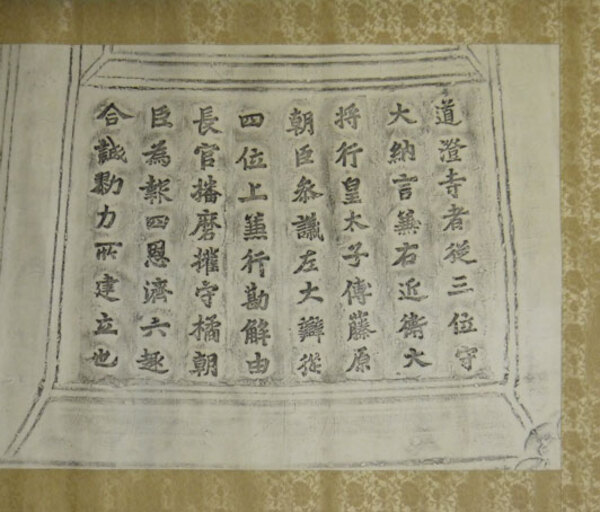 道澄寺者従三位守
大納言兼右近衛大
将行皇太子傅藤原
朝臣参議左大辯従
四位上兼行勘解由
長官播磨権守橘朝
臣為報四恩濟六趣
合誠勠力所建立也